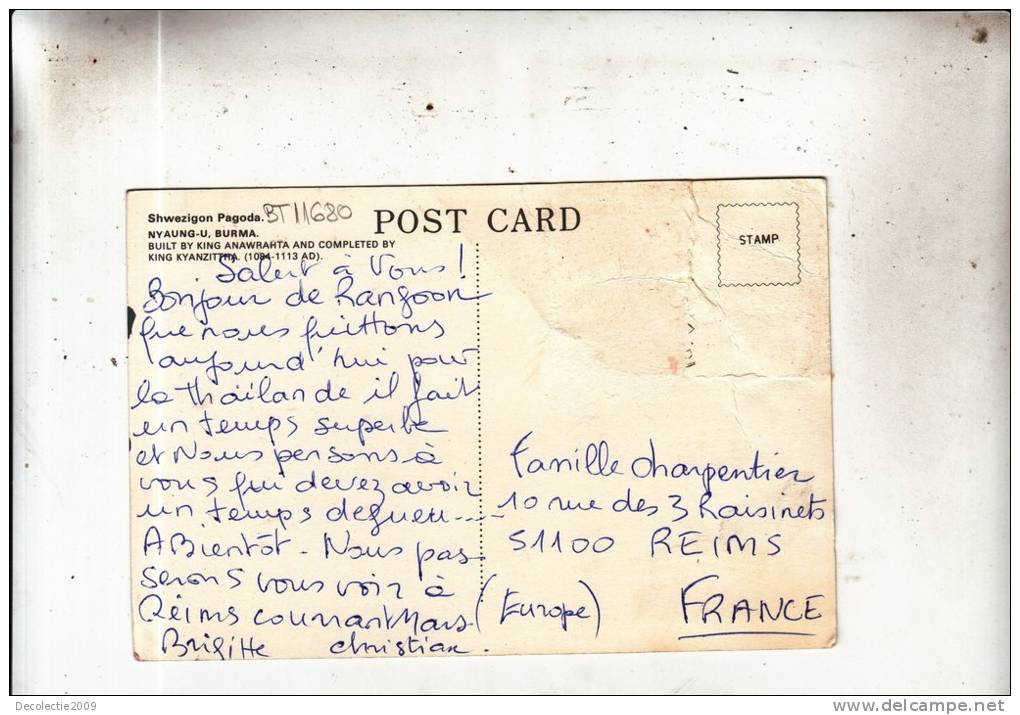 Shwezigon Pagoda. BT11680
NYAUNG-U, BURMA.
BUILT BY KING ANAWRAHTA AND COMPLETED BY
KING KYANZITTHA. (1084-1113 AD).
POST CARD
STAMP
Salut à Vous !
Bonjour de Rangoon
que nous quittons
aujourd'hui pour
la Thaïlande il fait
un temps superbe
et Nous pensons à
vous qui devez avoir
un temps degueu .....
A Bientôt - Nous pas-
serons vous voir à
Reims courant Mars
Brigitte christian .
Famille Charpentier
10 rue des 3 Raisinets
51100 REIMS
(Europe) FRANCE
Decolectie2009
www.delcampe.net